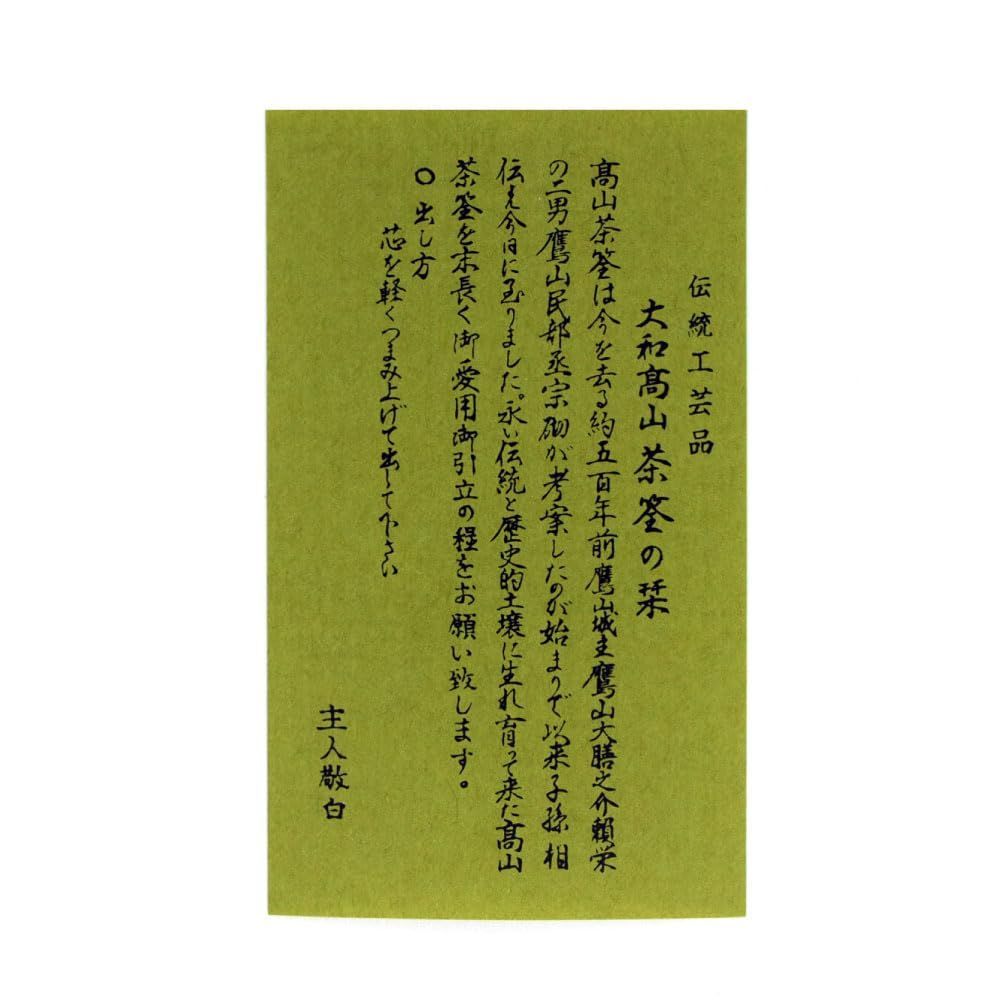 伝統工芸品
大和髙山茶筌の栞
髙山茶筌は今を去る約五百年前鷹山城主鷹山大膳之介頼栄
の二男鷹山民部丞宗砌が考案したのが始まりで以来子孫相
伝え今日に至りました。永い伝統と歴史的土壌に生れ育って来た髙山
茶筌を末長く御愛用御引立の程をお願い致します。
○出し方
芯を軽くつまみ上げて出して下さい
主人敬白